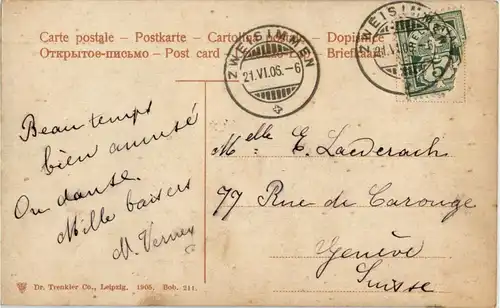 Carte postale – Postkarte – Cartolina postale – Dopisnice
Открытое-письмо – Post card
Briefkaart
ZWEISIMMEN
21.VI.06.–6
ZWEISIMMEN
21.VI.06.–6
5
Beau temps
bien amusé
On danse.
Mille baisers
M. Verney
Melle E. Laederach
77 Rue de Carouge
Genève
Suisse
Dr. Trenkler Co., Leipzig. 1905. Bob. 211.